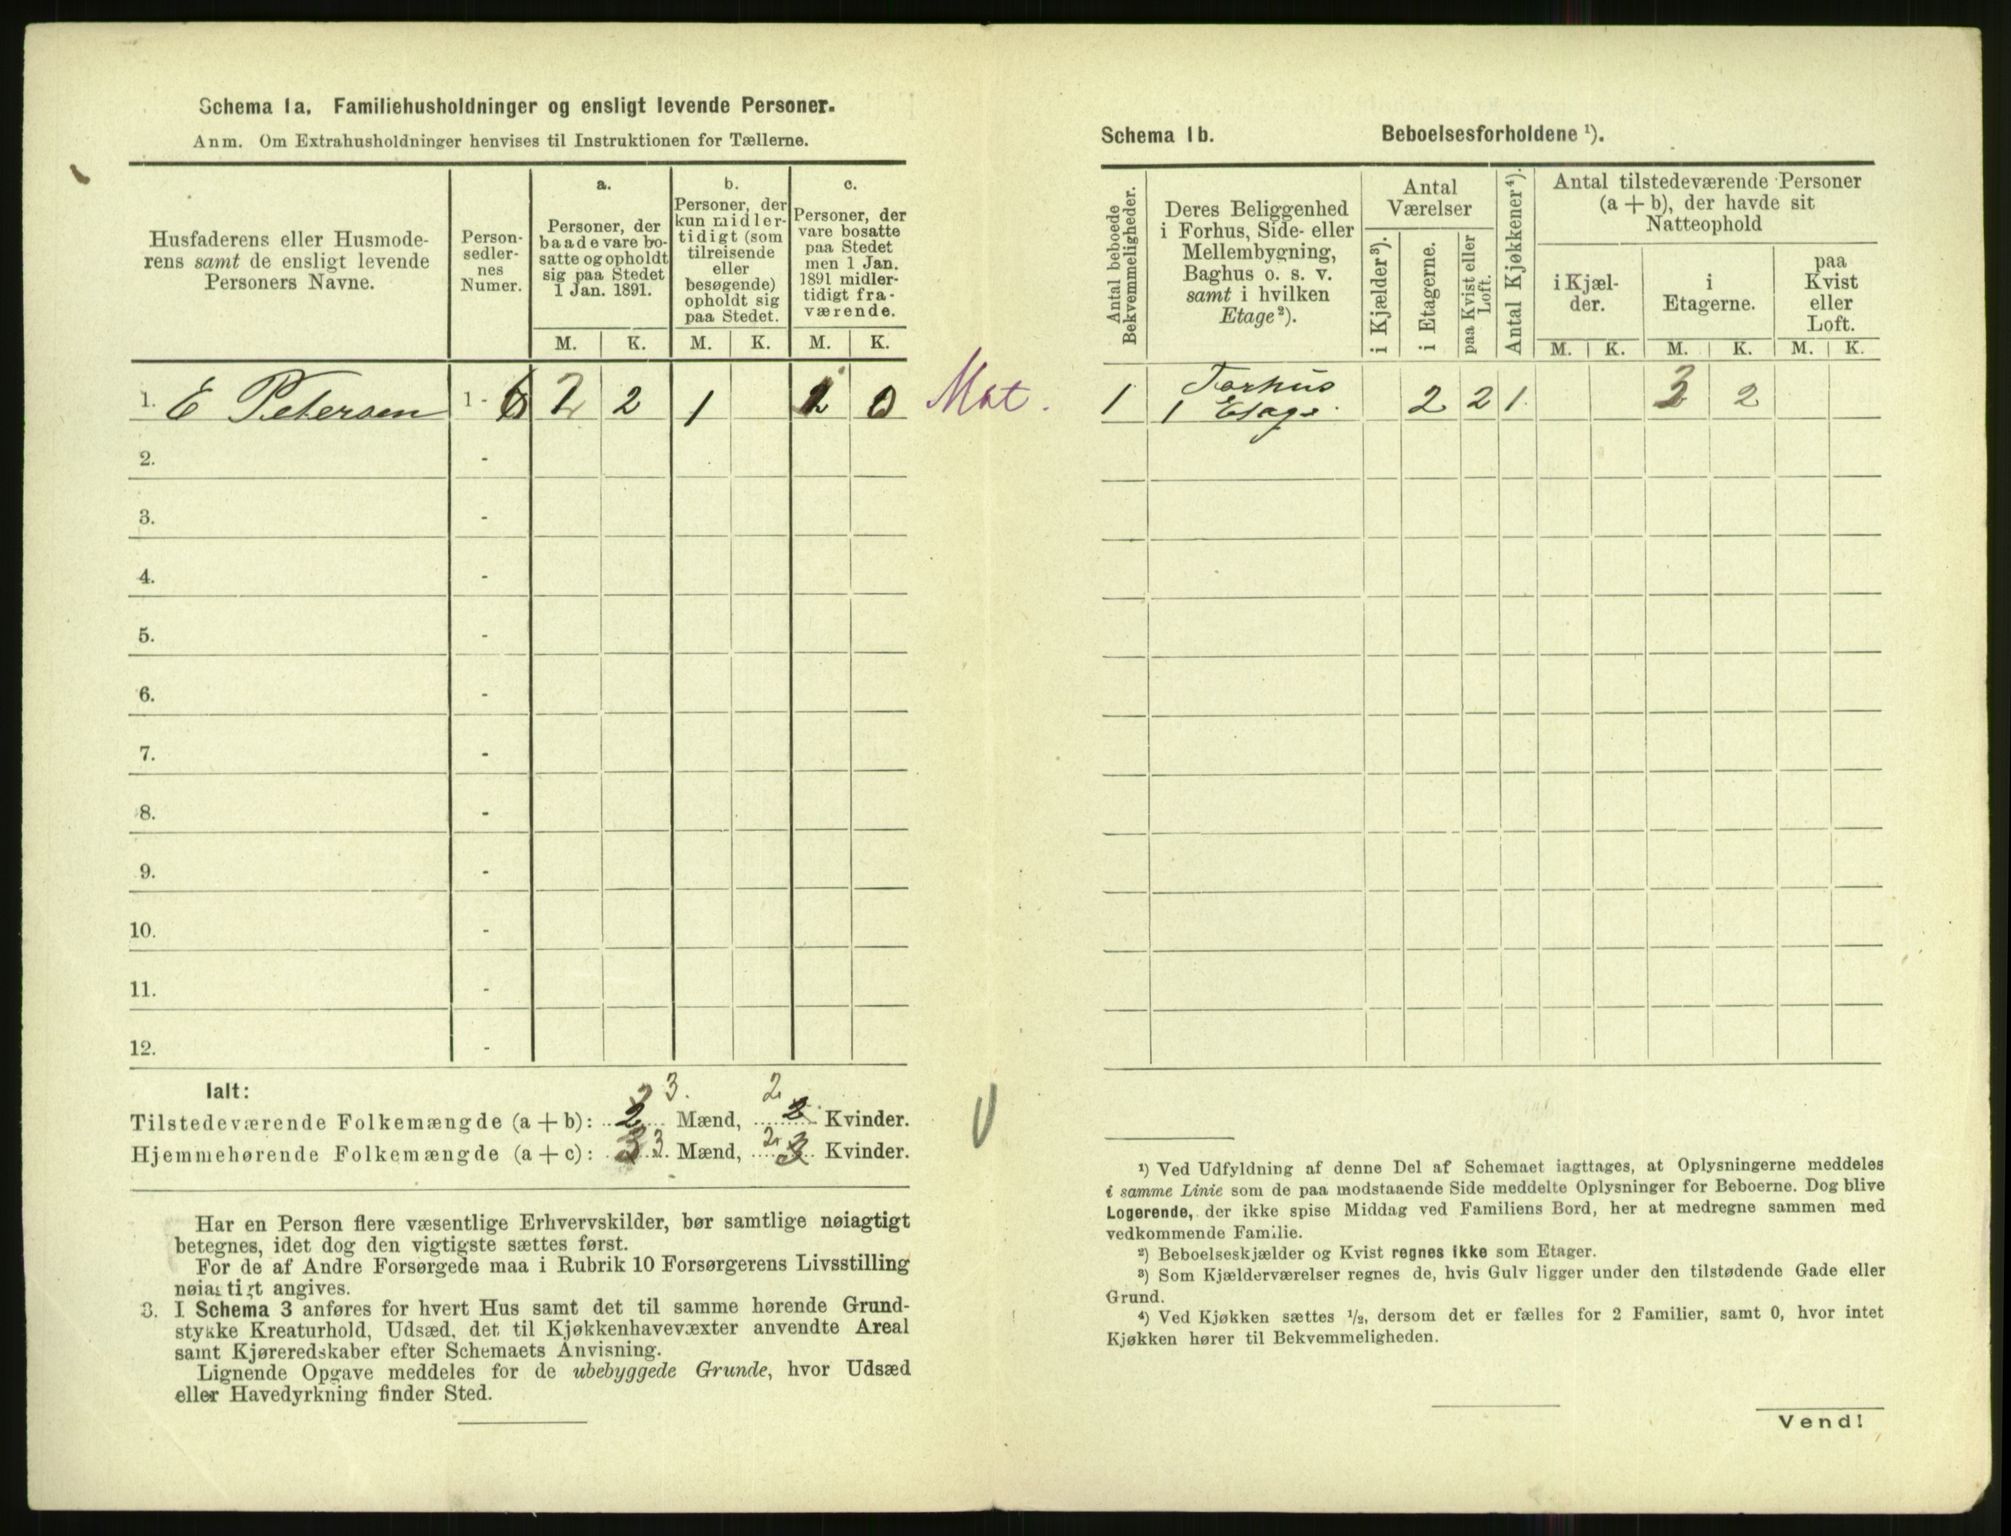 Schema 1a. Familiehusholdninger og ensligt levende Personer.
Anm. Om Extrahusholdninger henvises til Instruktionen for Tællerne.
Husfaderens eller Husmode-
rens samt de ensligt levende
Personers Navne.
Person-
sedler-
nes
Numer.
a.
Personer, der
baade vare bo-
satte og opholdt
sig paa Stedet
1 Jan. 1891.
b.
Personer, der
kun midler-
tidigt (som
tilreisende
eller
besøgende)
opholdt sig
paa Stedet.
c.
Personer, der
vare bosatte
paa Stedet
men 1 Jan.
1891 midler-
tidigt fra-
værende.
M. K. M. K. M. K.
1. E Petersen 1 - 2 2 1 0 Mat.
2. -
3. -
4. -
5. -
6. -
7. -
8. -
9. -
10. -
11. -
12. -
Ialt:
3. 2
Tilstedeværende Folkemængde (a + b): 2 Mænd, 2 Kvinder.
Hjemmehørende Folkemængde (a + c): 3 3 Mænd, 2 3 Kvinder.
Har en Person flere væsentlige Erhvervskilder, bør samtlige nøiagtigt
betegnes, idet dog den vigtigste sættes først.
For de af Andre Forsørgede maa i Rubrik 10 Forsørgerens Livsstilling
nøiagtigt angives.
3. I Schema 3 anføres for hvert Hus samt det til samme hørende Grund-
stykke Kreaturhold, Udsæd, det til Kjøkkenhavevæxter anvendte Areal
samt Kjøreredskaber efter Schemaets Anvisning.
Lignende Opgave meddeles for de ubebyggede Grunde, hvor Udsæd
eller Havedyrkning finder Sted.
Schema 1b. Beboelsesforholdene ¹).
Antal beboede
Bekvemmeligheder.
Deres Beliggenhed
i Forhus, Side- eller
Mellembygning,
Baghus o. s. v.
samt i hvilken
Etage²).
Antal
Værelser
i Kjælder³).
i Etagerne.
paa Kvist eller
Loft.
Antal Kjøkkener⁴).
Antal tilstedeværende Personer
(a + b), der havde sit
Natteophold
i Kjæl-
der.
i
Etagerne.
paa
Kvist
eller
Loft.
M. K. M. K. M. K.
1 Forhus
1 Etage. 2 2 1 3 2
¹) Ved Udfyldning af denne Del af Schemaet iagttages, at Oplysningerne meddeles
i samme Linie som de paa modstaaende Side meddelte Oplysninger for Beboerne. Dog blive
Logerende, der ikke spise Middag ved Familiens Bord, her at medregne sammen med
vedkommende Familie.
²) Beboelseskjælder og Kvist regnes ikke som Etager.
³) Som Kjælderværelser regnes de, hvis Gulv ligger under den tilstødende Gade eller
Grund.
⁴) Ved Kjøkken sættes ½, dersom det er fælles for 2 Familier, samt 0, hvor intet
Kjøkken hører til Bekvemmeligheden.
Vend!